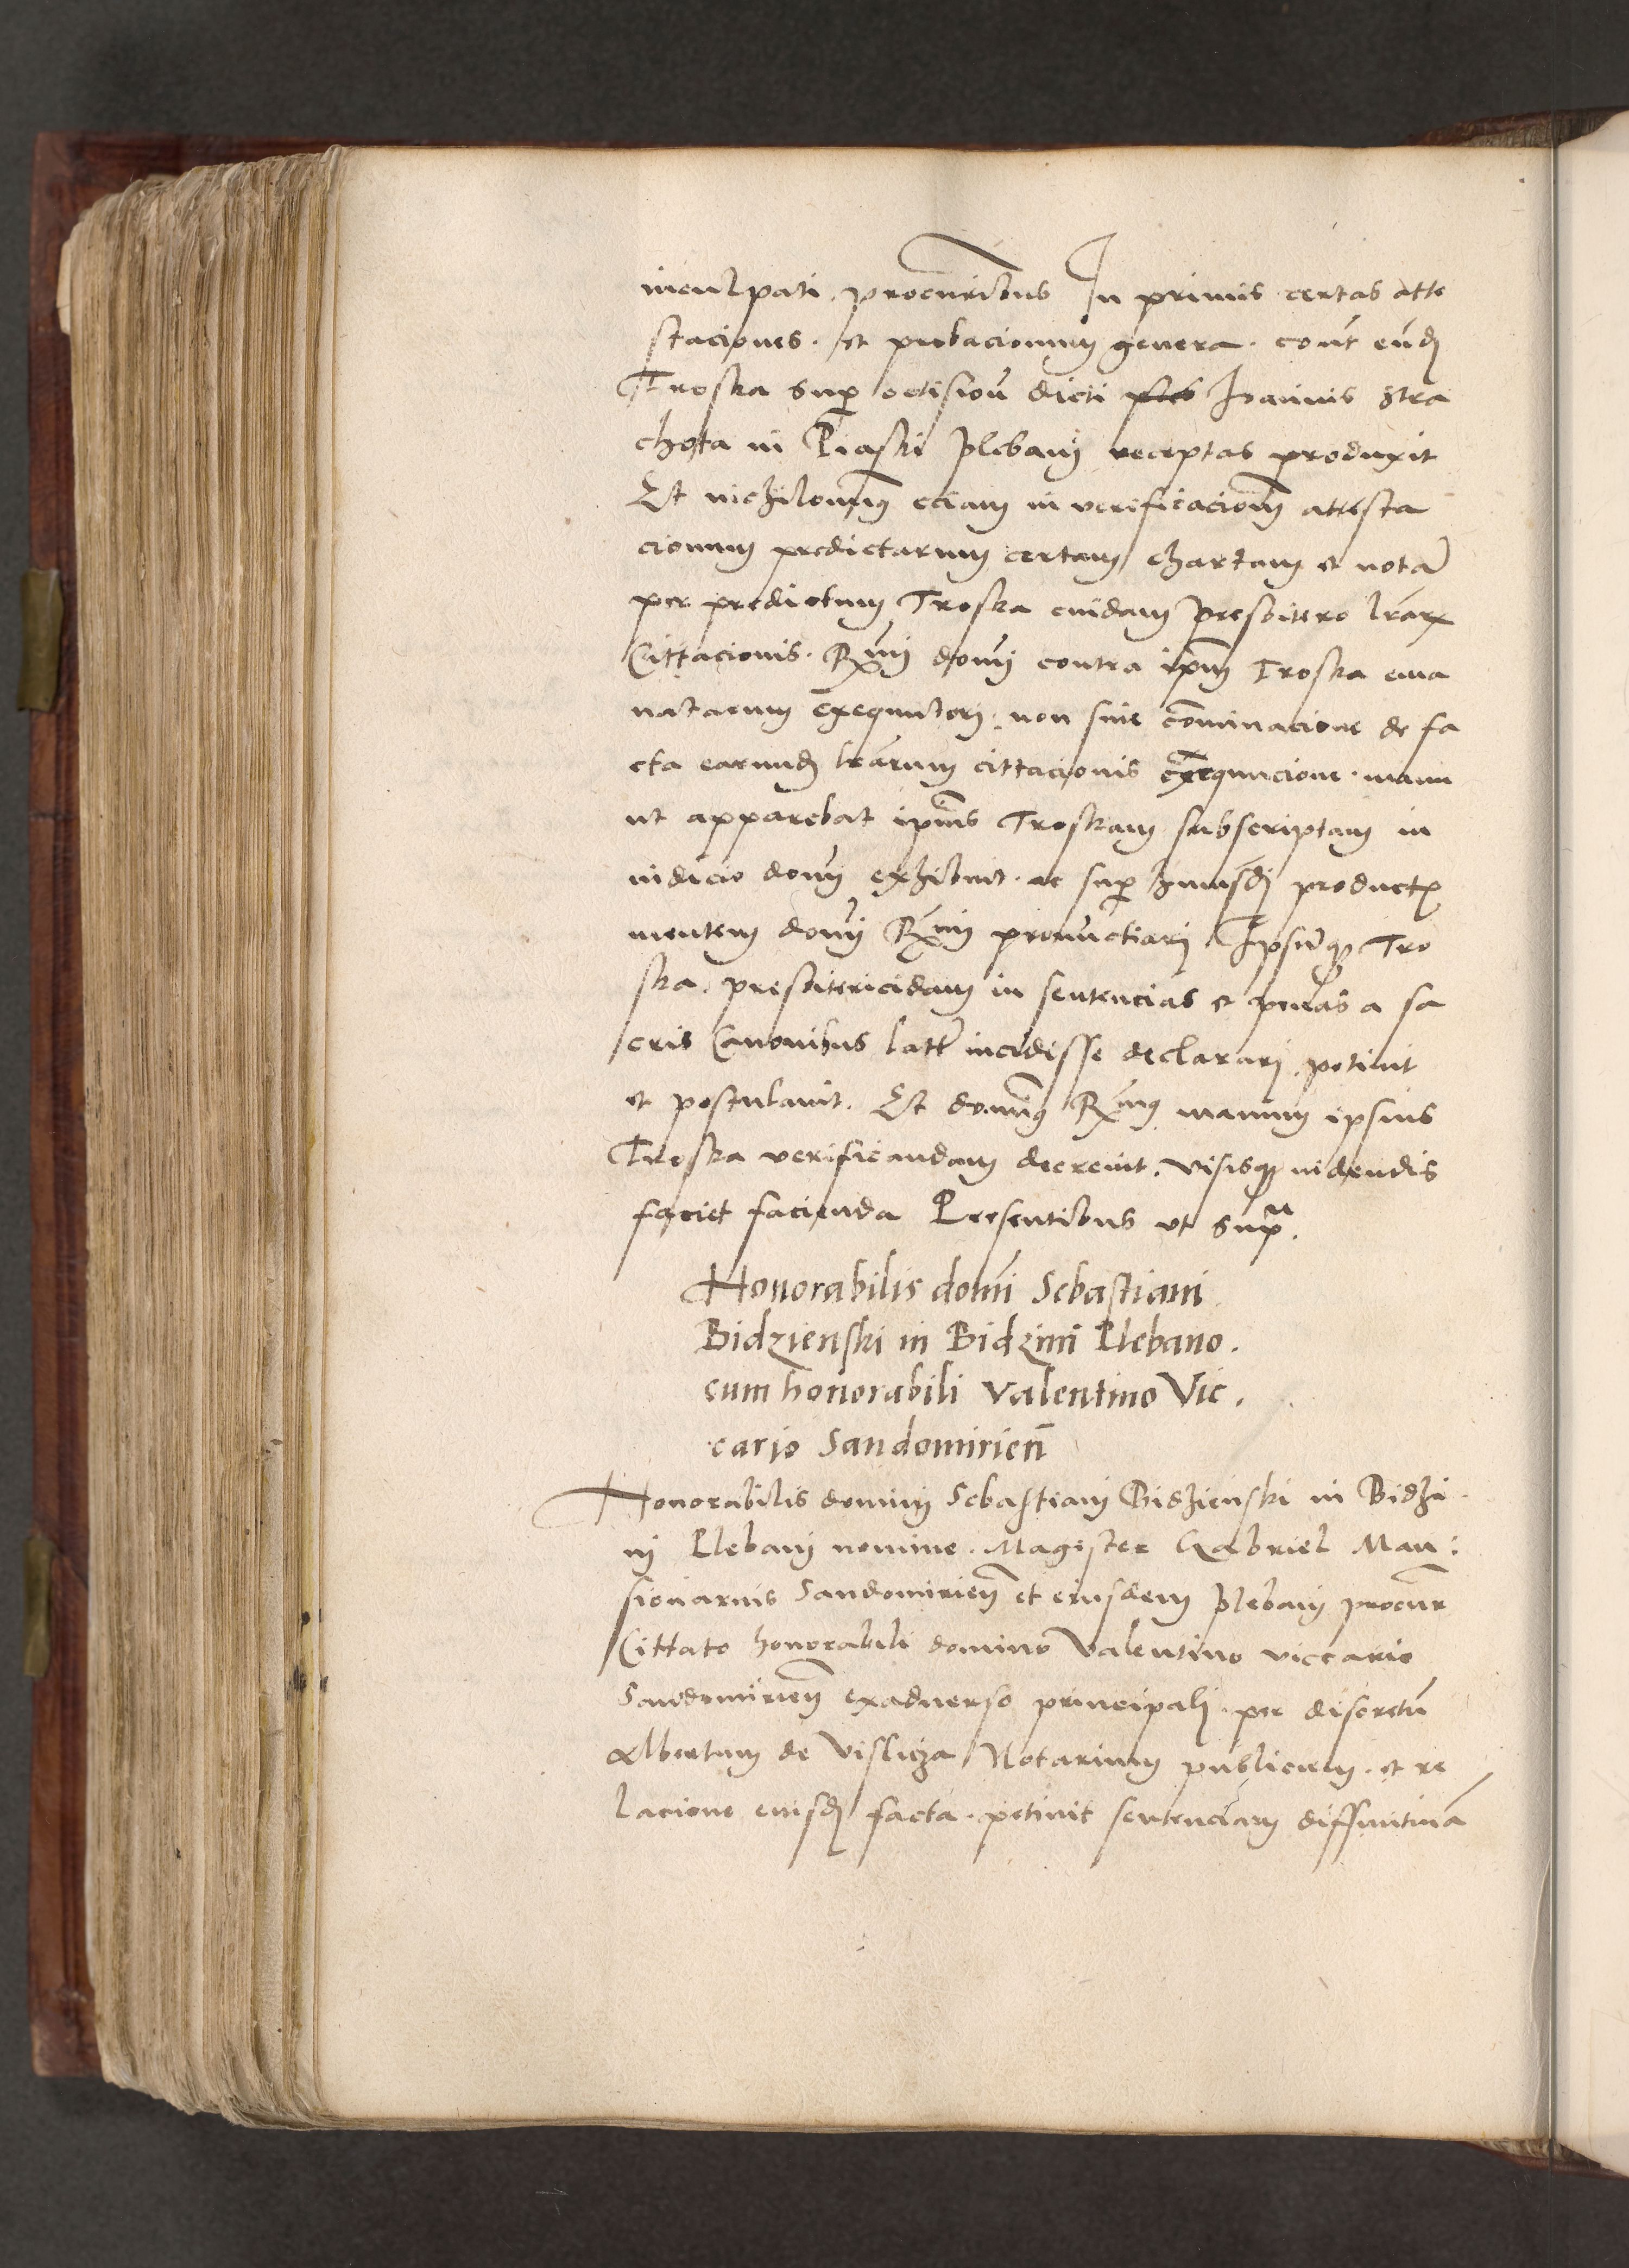 inculpati procuribus In primis certas atte
staciones. et probacionum genera. cont eund
Troska sup occision dicti Ioannis Stra
chota in Piaski plebani receptas produxit
Et nichilominus eciam in verificacionem attesta
cionum predictarum certam chartam et nota
per predictum Troska cuidam presbitero lrarum
Cittacionis. Rmi domi contra ipm Troska ema
natarum exequutori. non sine cominacione de fa
cta earund lrarum cittacionis exequucione. manu
ut apparebat ipius Troskam subscriptam in
iudicio domi exhibuit. ac sup huiusdi
mentem domi Rmi pronuctiari Ipsumq Tro
ska. presbitericidam in sentencias et penas a sa
cris Canonibus latt incidisse declarari petiuit
et postulauit. Et dominus Rmus manum ipsius
Troska verificandam decreuit. visisq videndis
faciet facienda Presentibus vt supra.
Honorabilis domi Sebastiani
Bidzienski in Bidzini Plebano.
cum honorabili Valentino Vic.
cario Sandomirien
Honorabilis domini Sebastiani Bidzienski in Bidzi
ni Plebani nomine. Magister Gabriel Man:
sionarius Sandomirien et eiusdem plebani procur
Cittato honorabili domino Valentino viccario
Sandomirien exaduerso principali. per discretu
Albertum de Visliza Notarium publicum. et re
lacione eiusd facta. petiuit sentenciam diffinitiua